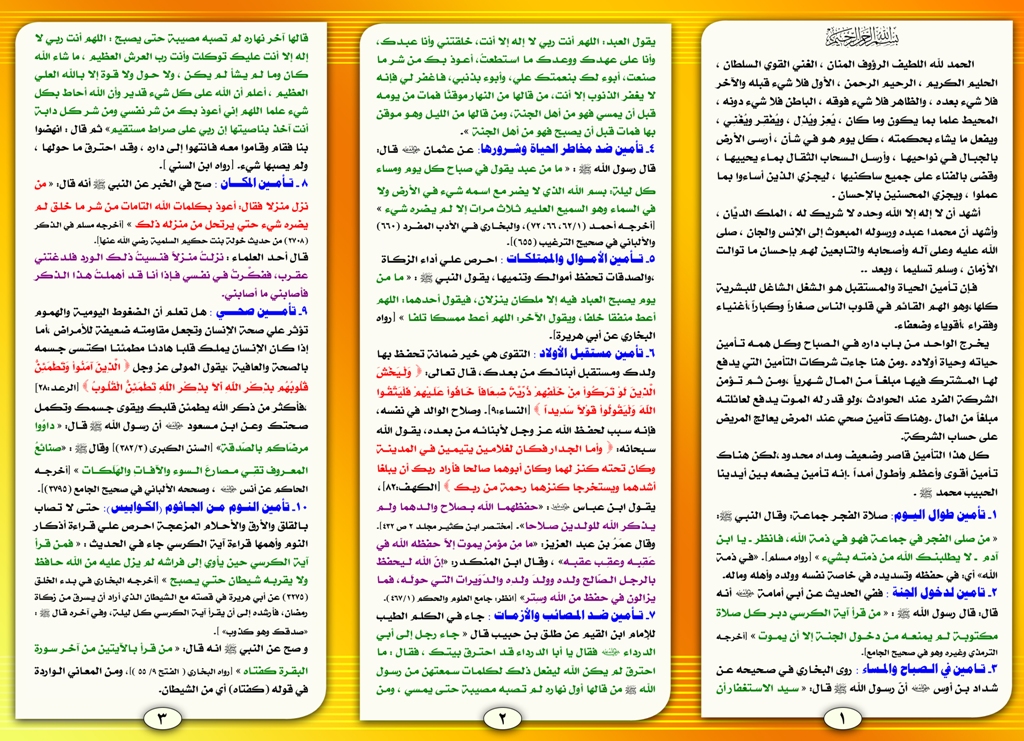 بسم الله الرحمن الرحيم
الحمد لله اللطيف الرؤوف المنان ، الغني القوي السلطان ،
الحليم الكريم ، الرحيم الرحمن ، الأول فلا شيء قبله والآخر
فلا شيء بعده ، والظاهر فلا شيء فوقه ، الباطن فلا شيء دونه ،
المحيط علما بما يكون وما كان ، يُعز ويُذل ، ويُفقر ويُغْني ،
ويفعل ما يشاء بحكمته ، كل يوم هو في شأن ، أرسى الأرض
بالجبال في نواحيها ، وأرسل السحاب الثقال بماء يحييها ،
وقضى بالفناء على جميع ساكنيها ، ليجزي الذين أساءوا بما
عملوا ، ويجزي المحسنين بالإحسان .
أشهد أن لا إله إلا الله وحده لا شريك له ، الملك الديَّان ،
وأشهد أن محمدا عبده ورسوله المبعوث إلى الإنس والجان ، صلى
الله عليه وعلى آله وأصحابه والتابعين لهم بإحسان ما توالت
الأزمان ، وسلم تسليما ، وبعد ..
فإن تأمين الحياة والمستقبل هو الشغل الشاغل للبشرية
كلها،وهو الهم القائم في قلوب الناس صغاراً وكباراً،أغنياء
وفقراء ،أقوياء وضعفاء.
يخرج الواحد من باب داره في الصباح وكل همه تأمين
حياته وحياة أولاده .ومن هنا جاءت شركات التأمين التي يدفع
لها المشترك فيها مبلغاً من المال شهرياً ،ومن ثم تؤمن
الشركة الفرد عند الحوادث ،ولو قدر له الموت يدفع لعائلته
مبلغاً من المال .وهناك تأمين صحي عند المرض يعالج المريض
على حساب الشركة.
كل هذا التأمين قاصر وضعيف ومداه محدود ،لكن هناك
تأمين أقوى وأعظم وأطول أمداً .إنه تأمين يضعه بين أيدينا
الحبيب محمد ﷺ .
١ـ تأمين طوال اليوم: صلاة الفجر جماعة: وقال النبي ﷺ:
« من صلى الفجر في جماعة فهو في ذمة الله، فانظر ـ يا ابن
آدم ـ لا يطلبنك الله من ذمته بشيء» [رواه مسلم]. «في ذمة
الله» أي: في حفظه وتسديده في خاصة نفسه وولده وأهله وماله.
٢ـ تامين لدخول الجنة : ففي الحديث عن أبي أمامة ﵁ أنه
قال: قال رسول الله ﷺ : « من قرأ آية الكرسي دبر كل صلاة
مكتوبة لم يمنعه من دخول الجنة إلا أن يموت » [أخرجه
الترمذي وغيره وهو في صحيح الجامع].
٣ـ تامين في الصباح والمساء : روى البخاري في صحيحه عن
شداد بن أوس ﵁ أنّ رسول الله ﷺ قال: « سيد الاستغفار أن
١
يقول العبد: اللهم أنت ربي لا إله إلا أنت، خلقتني وأنا عبدك،
وأنا على عهدك ووعدك ما استطعت، أعوذ بك من شر ما
صنعت، أبوء لك بنعمتك علي، وأبوء بذنبي، فاغفر لي فإنه
لا يغفر الذنوب إلا أنت، من قالها من النهار موقنًا فمات من يومه
قبل أن يمسي فهو من أهل الجنة، ومن قالها من الليل وهو موقن
بها فمات قبل أن يصبح فهو من أهل الجنة ».
٤ـ تأمين ضد مخاطر الحياة وشرورها : عن عثمان ﵁ قال:
قال رسول الله ﷺ : « ما من عبد يقول في صباح كل يوم ومساء
كل ليلة: بسم الله الذي لا يضر مع اسمه شيء في الأرض ولا
في السماء وهو السميع العليم ثلاث مرات إلا لم يضره شيء »
[أخرجه أحمد (٦٢/١، ٦٦، ٧٢)، والبخاري في الأدب المفرد (٦٦٠)
والألباني في صحيح الترغيب (٦٥٥)].
٥ـ تــأمين الأمــوال والممتلكــات : احـرص علـي أداء الزكـاة
،والصدقات تحفظ أموالك وتنميها، يقول النبي ﷺ : « ما من
يوم يصبح العباد فيه إلا ملكان ينزلان، فيقول أحدهما: اللهم
أعط منفقا خلفا، ويقول الآخر: اللهم أعط ممسكا تلفا » [رواه
البخاري عن أبي هريرة].
٦ـ تأمين مستقبل الأولاد : التقوى هي خير ضمانة تحفظ بها
ولدك ومستقبل أبنائك من بعدك، قال تعالى: ﴿ وَلْيَخْشَ
الَّذِينَ لَوْ تَرَكُواْ مِنْ خَلْفِهِمْ ذُرِّيَّةً ضِعَافًا خَافُواْ عَلَيْهِمْ فَلْيَتَّقُوا
اللّهَ وَلْيَقُولُواْ قَوْلاً سَدِيداً ﴾ [النساء:٩]. وصلاح الوالد في نفسه،
فإنه سبب لحفظ الله عز وجل لأبنائه من بعده، يقول الله
سبحانه: ﴿ وأما الجدار فكان لغلامين يتيمين في المدينة
وكان تحته كنز لهما وكان أبوهما صالحا فأراد ربك أن يبلغا
أشدهما ويستخرجا كنزهما رحمة من ربك ﴾ [الكهف:٨٢]،
يقول ابن عباس ﵁ : «حفظهما الله بصلاح والدهما ولم
يذكر الله للولدين صلاحا». [مختصر ابن كثير مجلد ٢ ص ٤٣٢].
وقال عمرُ بن عبد العزيز: «ما من مؤمن يموت إلا حفظه الله في
عقبه وعقب عقبه» ، وقال ابن المنكدر: «إنَّ الله ليحفظ
بالرجل الصَّالح ولده وولدَ ولده والدّويرات التي حوله، فما
يزالون في حفظ من الله وستر» [انظر: جامع العلوم والحكم (٤٦٧/١)].
٧ـ تــأمين ضد المصائب والأزمــات : جاء في الكلم الطيب
للإمام ابن القيم عن طلق بن حبيب قال: « جاء رجل إلى أبي
الدرداء ﵁ فقال يا أبا الدرداء قد احترق بيتك ، فقال : ما
احترق لم يكن الله ليفعل ذلك لكلمات سمعتهن من رسول
الله ﷺ من قالها أول نهاره لم تصبه مصيبة حتى يمسي ، ومن
٢
قالها آخر نهاره لم تصبه مصيبة حتى يصبح : اللهم أنت ربي لا
إله إلا أنت عليك توكلت وأنت رب العرش العظيم ، ما شاء الله
كان وما لم يشأ لم يكن ، ولا حول ولا قوة إلا بالله العلي
العظيم ، أعلم أن الله على كل شيء قدير وأن الله أحاط بكل
شيء علما اللهم إني أعوذ بك من شر نفسي ومن شر كل دابة
أنت آخذ بناصيتها إن ربي على صراط مستقيم» ثم قال : انهضوا
بنا فقام وقاموا معه فانتهوا إلى داره ، وقد احترق ما حولها ،
ولم يصبها شيء. [رواه ابن السني ].
٨ ـ تــأمين المكــان : صح في الخبر عن النبي ﷺ أنه قال: « من
نزل منزلا فقال: أعوذ بكلمات الله التامات من شر ما خلق لم
يضره شيء حتى يرتحل من منزله ذلك » [أخرجه مسلم في الذكر
(٢٧٠٨) من حديث خولة بنت حكيم السلمية رضي الله عنها].
قال أحد العلماء : نزلتُ منزلاً فنسيتُ ذلك الورد فلدغتني
عقرب، ففكّرتُ في نفسي فإذا أنا قد أهملتُ هذا الذكر
فأصابني ما أصابني.
٩ـ تأمــين صحـي : هل تعلم أن الضغوط اليومية والهموم
تؤثر على صحة الإنسان وتجعل مقاومته ضعيفة للأمراض ،أما
إذا كان الإنسان يملك قلبا هادئا مطمئنا اكتسى جسمه
بالصحة والعافية ،يقول المولى عز وجل ﴿ الَّذِينَ آمَنُواْ وَتَطْمَئِنُّ
قُلُوبُهُم بِذِكْرِ اللّهِ أَلاَ بِذِكْرِ اللّهِ تَطْمَئِنُّ الْقُلُوبُ ﴾ [الرعد:٢٨]
،فأكثر من ذكر الله يطمئن قلبك ويقوى جسمك وتكمل
صحتك وعن ابن مسعود ﵁ أن رسول الله ﷺ قال: « داوُوا
مرضاكم بالصدقة» [السنن الكبرى (٣٨٢/٣)] وقال ﷺ : «صنائعُ
المعروف تقي مصارعَ السوء والآفات والهَلكات » [أخرجه
الحاكم عن أنس ﵁ ، وصححه الألباني في صحيح الجامع (٣٧٩٥)].
١٠ـ تأمين النـوم من الجاثوم (الكـوابيس): حتى لا تصاب
بالقلق والأرق والأحلام المزعجة احرص علي قراءة أذكار
النوم وأهمها قراءة آية الكرسي جاء في الحديث : « فمن قرأ
آية الكرسي حين يأوى إلى فراشه لم يزل عليه من الله حافظ
ولا يقربه شيطان حتى يصبح » [أخرجه البخاري في بدء الخلق
(٣٢٧٥) عن أبي هريرة في قصته مع الشيطان الذي أراد أن يسرق من زكاة
رمضان، فأرشده إلى أن يقرأ آية الكرسي كل ليلة، وفي آخره قال ﷺ :
«صدقك وهو كذوب» ].
و صح عن النبي ﷺ انه قال: « من قرأ بالآيتين من آخر سورة
البقرة كفتاه » [رواه البخاري ( الفتح ٩/ ٥٥ )]، ومن المعاني الواردة
في قوله (كفتاه) أي من الشيطان.
٣